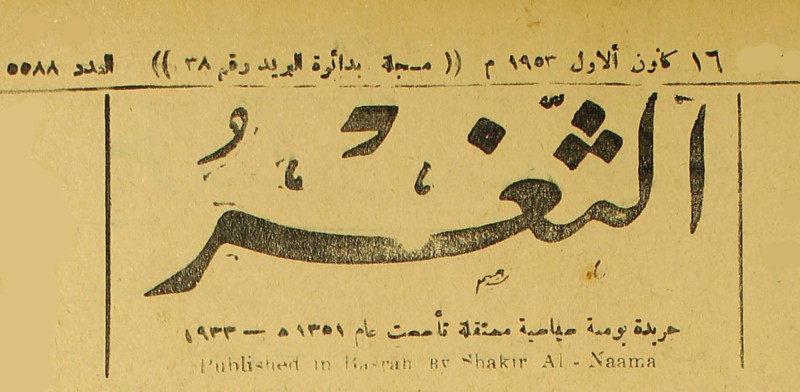 ١٦ كانون ألاول ١٩٥٣ م (( مسجلة بدائرة البريد رقم ٣٨ )) العدد ٥٥٨٨
الثَّغْرُ
جريدة يومية سياسية مستقلة تأسست عام ١٣٥١ ه — ١٩٣٣
Published in Basrah BY Shakir Al - Naama